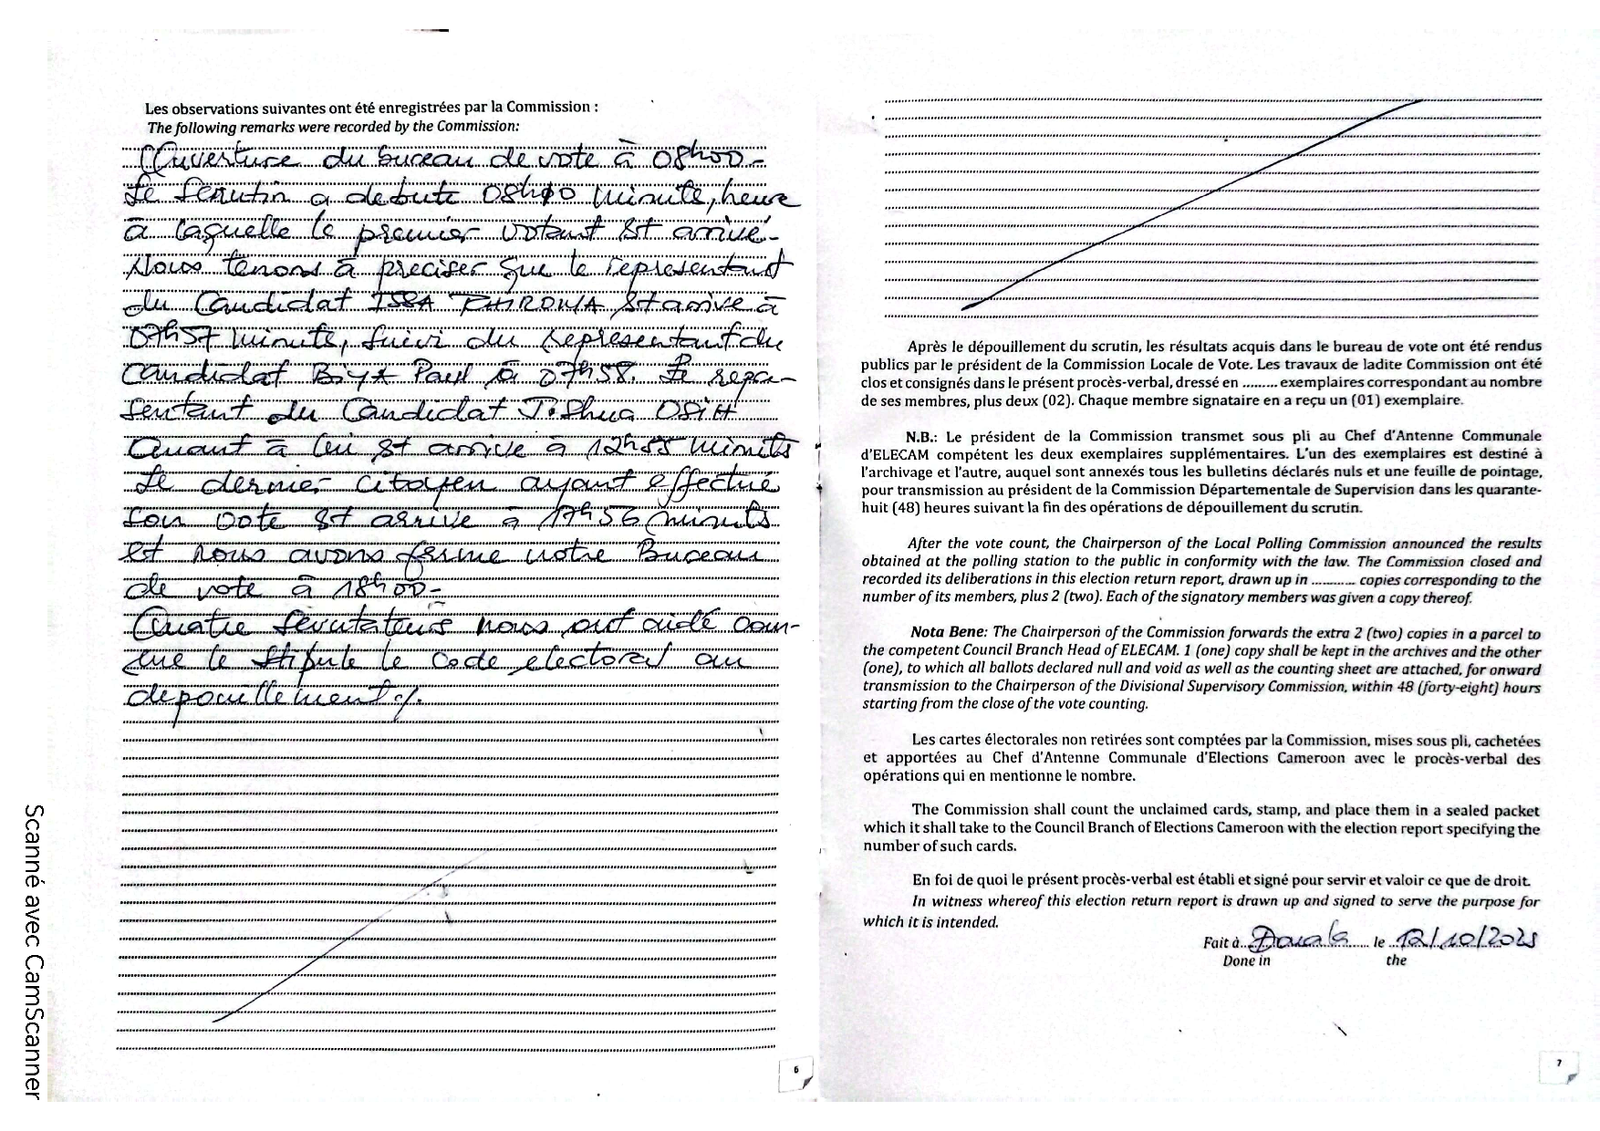 Les observations suivantes ont été enregistrées par la Commission :
The following remarks were recorded by the Commission:
Ouverture du bureau de vote à 08h00-
Le scrutin a debute 08h10 minute, heure
à laquelle le premier votant st arrivé-
Nous tenons à preciser que le representant
du Candidat ISSA TCHIROMA st arrive à
07h57 minute, suivi du representant du
Candidat Biya Paul à 07h58. Le repre-
sentant du Candidat Joshua OSIH
Quant à lui st arrive à 12h55 minuts
Le dernier citoyen ayant effectué
son vote st arrive à 17h56 minuts
et nous avons fermé notre Bureau
de vote à 18h00-
Quatre scrutateurs nous ont aidé com-
me le stipule le code electoral au
depouillement./.
6
Après le dépouillement du scrutin, les résultats acquis dans le bureau de vote ont été rendus
publics par le président de la Commission Locale de Vote. Les travaux de ladite Commission ont été
clos et consignés dans le présent procès-verbal, dressé en .......... exemplaires correspondant au nombre
de ses membres, plus deux (02). Chaque membre signataire en a reçu un (01) exemplaire.
N.B.: Le président de la Commission transmet sous pli au Chef d'Antenne Communale
d'ELECAM compétent les deux exemplaires supplémentaires. L'un des exemplaires est destiné à
l'archivage et l'autre, auquel sont annexés tous les bulletins déclarés nuls et une feuille de pointage,
pour transmission au président de la Commission Départementale de Supervision dans les quarante-
huit (48) heures suivant la fin des opérations de dépouillement du scrutin.
After the vote count, the Chairperson of the Local Polling Commission announced the results
obtained at the polling station to the public in conformity with the law. The Commission closed and
recorded its deliberations in this election return report, drawn up in ............ copies corresponding to the
number of its members, plus 2 (two). Each of the signatory members was given a copy thereof.
Nota Bene: The Chairperson of the Commission forwards the extra 2 (two) copies in a parcel to
the competent Council Branch Head of ELECAM. 1 (one) copy shall be kept in the archives and the other
(one), to which all ballots declared null and void as well as the counting sheet are attached, for onward
transmission to the Chairperson of the Divisional Supervisory Commission, within 48 (forty-eight) hours
starting from the close of the vote counting.
Les cartes électorales non retirées sont comptées par la Commission, mises sous pli, cachetées
et apportées au Chef d'Antenne Communale d'Elections Cameroon avec le procès-verbal des
opérations qui en mentionne le nombre.
The Commission shall count the unclaimed cards, stamp, and place them in a sealed packet
which it shall take to the Council Branch of Elections Cameroon with the election report specifying the
number of such cards.
En foi de quoi le présent procès-verbal est établi et signé pour servir et valoir ce que de droit.
In witness whereof this election return report is drawn up and signed to serve the purpose for
which it is intended.
Fait à Douala le 12/10/2025
Done in the
7
Scanné avec CamScanner